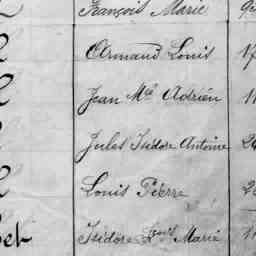 François Marie
Armand Louis 17
Jean Mle Adrien
Jules Isidore Antoine
Louis Pierre
Isidore Louis Marie